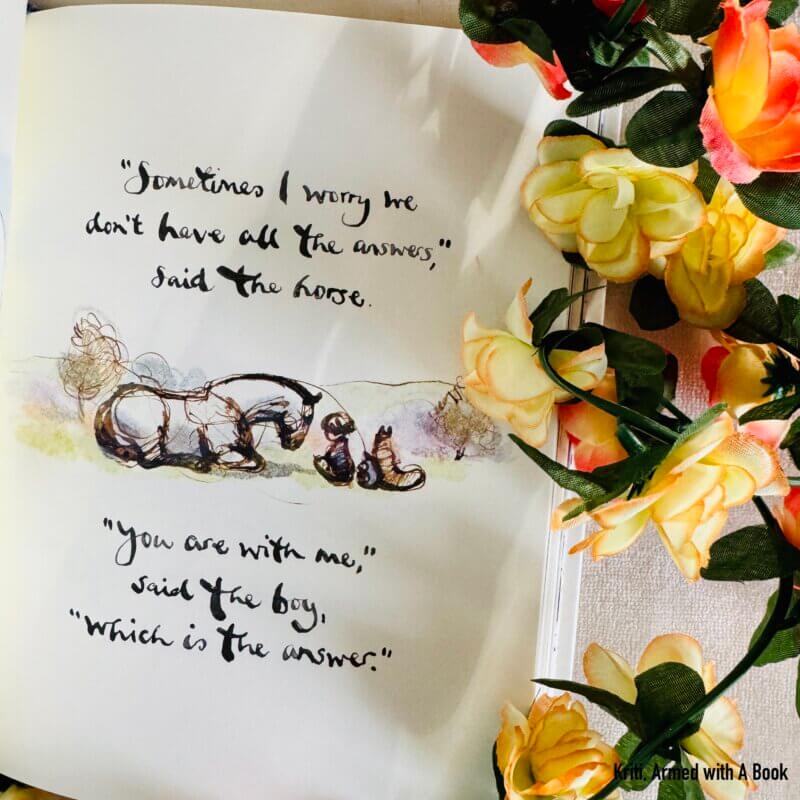 "Sometimes I worry we
don't have all the answers,"
said the horse.
"You are with me,"
said the boy,
"Which is the answer."
Kriti, Armed with A Book